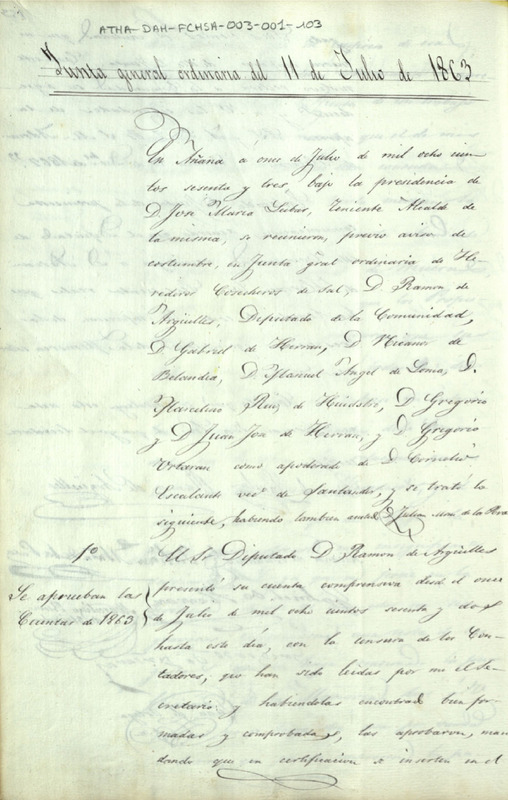 ATHA-DAH-FCHSA-003-001-103
Junta general ordinaria del 11 de Julio de 1863
En Añana á once de Julio de mil ocho cien
tos sesenta y tres, bajo la presidencia de
D. José Maria Tubar, Teniente Alcalde de
la misma, se reunieron, previo aviso de
costumbre, en Junta gral ordinaria de He-
rederos Cosecheros de Sal, D Ramon de
Argüelles, Deputado de la Comunidad,
D Gabriel de Herran, D Nicanor de
Belandia, D. Manuel Angel de Loma, D.
Marcelino Ruiz de Huidobro, D Gregorio
y D Juan José de Herran, y D Gregorio
Ortaran como apoderado de D Cornelio
Escalante veco de Santander, y se trató lo
siguiente, habiendo tambien D Julian
1o El Sr Diputado D Ramon de Argüelles
Se aprueban las
Cuentas de 1863
presentó su cuenta comprensiva desde el once
de Julio de mil ocho cientos sesenta y dos
hasta este dia, con la censura de los Con-
tadores, que han sido leidas por mi el Se-
cretario y habiendolas encontrado bien for-
madas y comprobadas, las aprobaron, man
dando que en certificacion se inserten en el